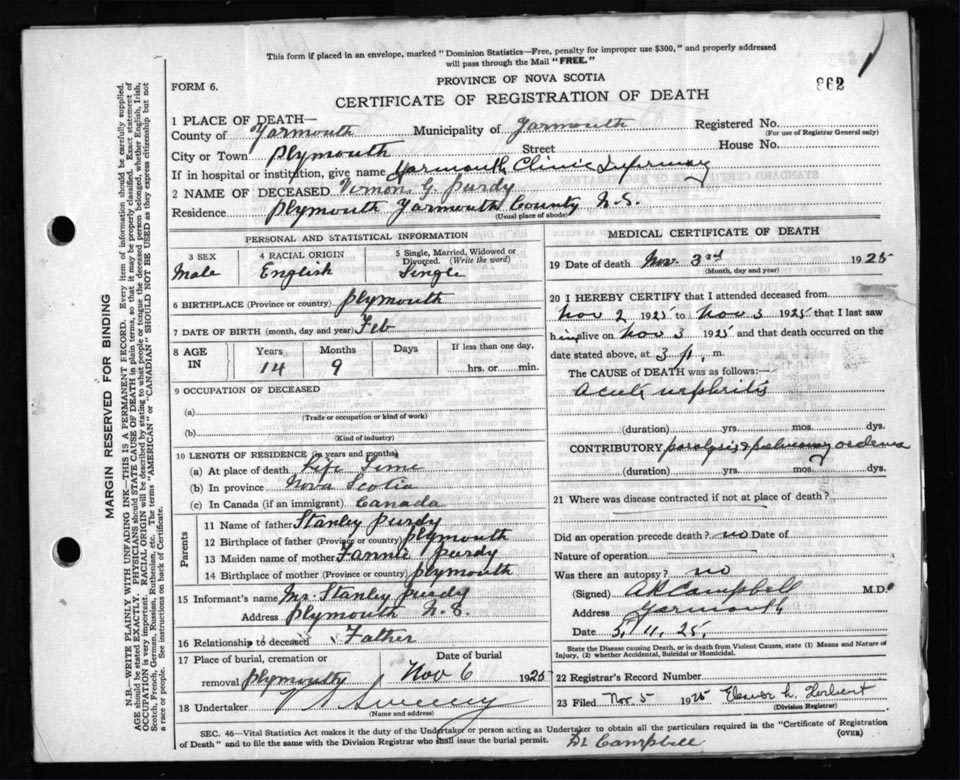 This form if placed in an envelope, marked "Dominion Statistics—Free, penalty for improper use $300," and properly addressed
will pass through the Mail "FREE."
PROVINCE OF NOVA SCOTIA
FORM 6.
862
CERTIFICATE OF REGISTRATION OF DEATH
1 PLACE OF DEATH—
County of Yarmouth Municipality of Yarmouth Registered No.
(For use of Registrar General only)
City or Town Plymouth Street House No.
If in hospital or institution, give name Yarmouth Clinic Infirmary
2 NAME OF DECEASED Vernon G. Purdy
Residence Plymouth Yarmouth County N.S.
(Usual place of abode)
PERSONAL AND STATISTICAL INFORMATION
3 SEX 4 RACIAL ORIGIN 5 Single, Married, Widowed or Divorced. (Write the word)
Male English Single
6 BIRTHPLACE (Province or country) Plymouth
7 DATE OF BIRTH (month, day and year) Feb
8 AGE IN Years Months Days If less than one day,
14 9 hrs. or min.
9 OCCUPATION OF DECEASED
(a)
(Trade or occupation or kind of work)
(b)
(Kind of industry)
10 LENGTH OF RESIDENCE (in years and months)
(a) At place of death Life Time
(b) In province Nova Scotia
(c) In Canada (if an immigrant) Canada
Parents
11 Name of father Stanley Purdy
12 Birthplace of father (Province or country) Plymouth
13 Maiden name of mother Fannie Purdy
14 Birthplace of mother (Province or country) Plymouth
15 Informant's name Mr. Stanley Purdy
Address Plymouth N.S.
16 Relationship to deceased Father
17 Place of burial, cremation or Date of burial
removal Plymouth Nov 6 1925
18 Undertaker Sweeny
(Name and address)
MEDICAL CERTIFICATE OF DEATH
19 Date of death Nov. 3rd 1925
(Month, day and year)
20 I HEREBY CERTIFY that I attended deceased from
Nov 2 1925 to Nov 3 1925 that I last saw
him alive on Nov 3 1925 and that death occurred on the
date stated above, at 3 p. m.
The CAUSE of DEATH was as follows:—
Acute nephritis
(duration) yrs. mos. dys.
CONTRIBUTORY paralysis & pulmonary oedema
(duration) yrs. mos. dys.
21 Where was disease contracted if not at place of death?
Did an operation precede death? no Date of
Nature of operation
Was there an autopsy? no
(Signed) AR Campbell M.D.
Address Yarmouth
Date 5. 11. 25.
State the Disease causing Death, or in death from Violent Causes, state (1) Means and Nature of
Injury, (2) whether Accidental, Suicidal or Homicidal.
22 Registrar's Record Number
23 Filed Nov 5 1925 Eleanor L. Herbert
(Division Registrar)
SEC. 46—Vital Statistics Act makes it the duty of the Undertaker or person acting as Undertaker to obtain all the particulars required in the "Certificate of Registration
of Death" and to file the same with the Division Registrar who shall issue the burial permit.
(OVER)
Dr Campbell
MARGIN RESERVED FOR BINDING
N.B.—WRITE PLAINLY WITH UNFADING INK—THIS IS A PERMANENT RECORD. Every item of information should be carefully supplied.
AGE should be stated EXACTLY. PHYSICIANS should STATE CAUSE OF DEATH in plain terms, so that it may be properly classified. Exact statement of
OCCUPATION is very important. RACIAL ORIGIN will be described by stating to what people or tongue the deceased person belonged, whether English, Irish,
Scotch, French, German, Russian, Ruthenian, etc. The terms "AMERICAN" or "CANADIAN" SHOULD NOT BE USED as they express citizenship but not
a race or people. See instructions on back of Certificate.